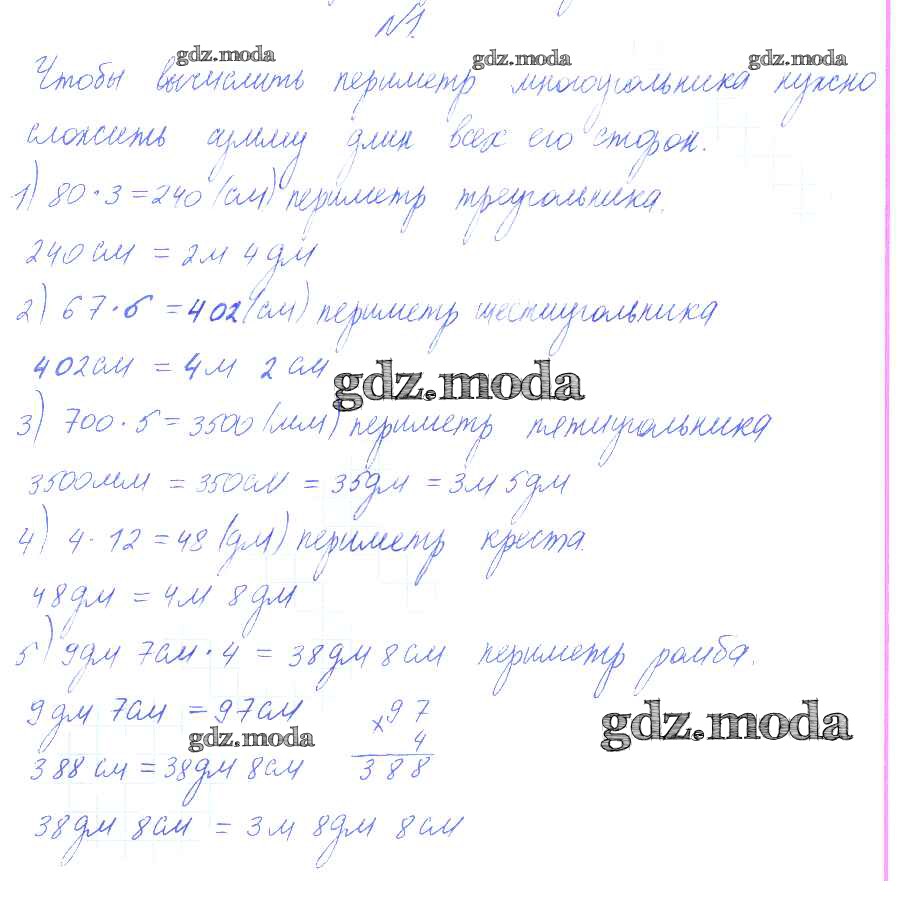 №1.
gdz.moda gdz.moda gdz.moda
Чтобы вычислить периметр многоугольника нужно
сложить сумму длин всех его сторон.
1) 80 · 3 = 240 (см) периметр треугольника.
240см = 2м 4дм
2) 67 · 6 = 402 (см) периметр шестиугольника
402см = 4м 2см
gdz.moda
3) 700 · 5 = 3500 (мм) периметр пятиугольника
3500мм = 350см = 35дм = 3м 5дм
4) 4 · 12 = 48 (дм) периметр креста.
48дм = 4м 8дм
5) 9дм 7см · 4 = 38дм 8см периметр ромба.
9дм 7см = 97см × 97
gdz.moda 4 gdz.moda
388см = 38дм 8см 388
38дм 8см = 3м 8дм 8см